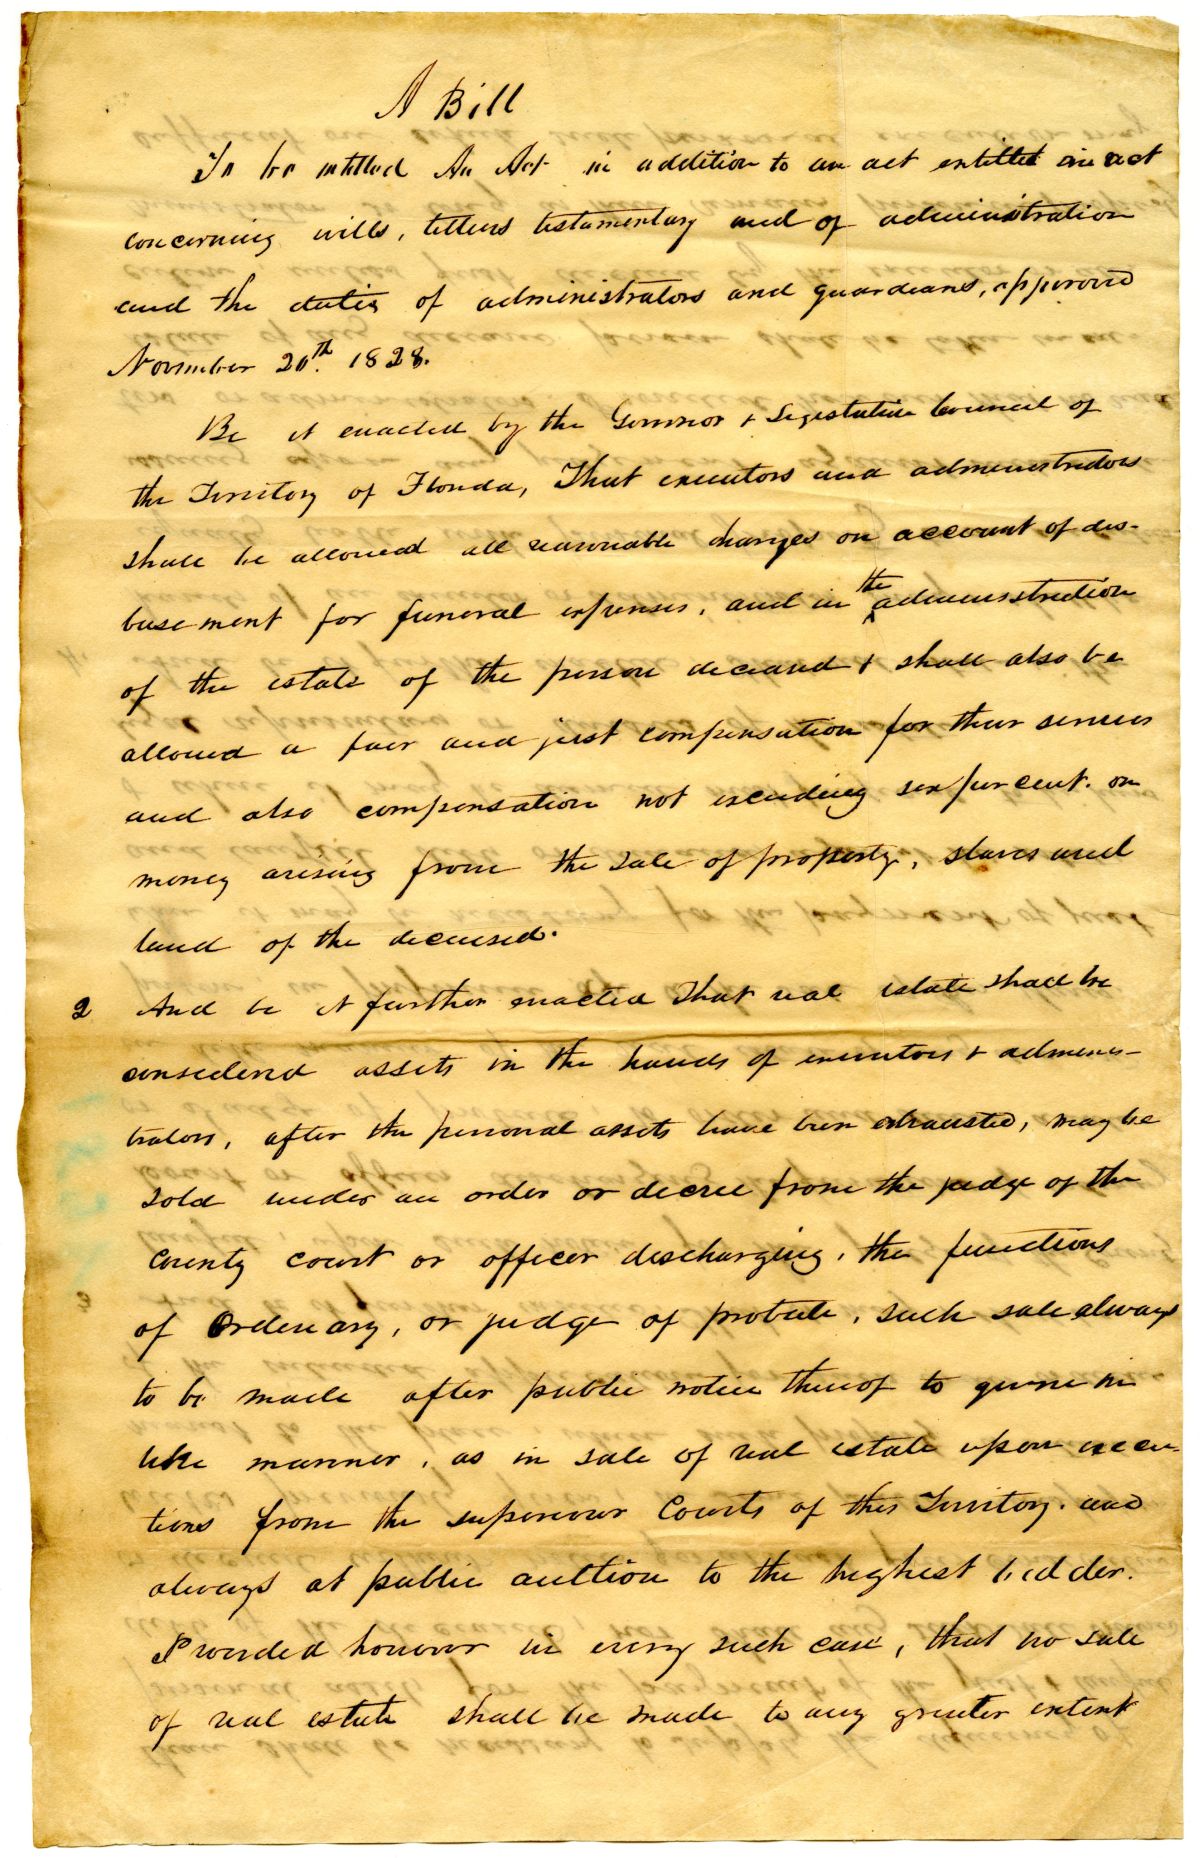 A Bill
To be intitled An Act in addition to an act entitled an act
concerning wills, letters testamentary and of administration
and the duties of administrators and guardians, approved
November 20th. 1828.
Be it enacted by the Governor & Legislative Council of
the Territory of Florida, That executors and administrators
shall be allowed all reasonable charges on account of dis-
busement for funeral expenses, and in the administration
of the estate of the person deceased & shall also be
allowed a fair and just compensation for their services
and also compensation not exceeding six per cent. on
money arising from the sale of property, slaves and
land of the deceased.
2 And be it further enacted That real estate shall be
considered assets in the hands of executors & adminis-
trators, after the personal assets have been exhausted, may be
sold under an order or decree from the judge of the
County court or officer discharging, the functions
of Ordinary, or judge of probate, such sale always
to be made after public notice thereof to given in
like manner, as in sale of real estate upon execu-
tions from the superiour Courts of this Territory. and
always at public auction to the highest bidder.
Provided however in every such case, that no sale
of real estate shall be made to any greater extent